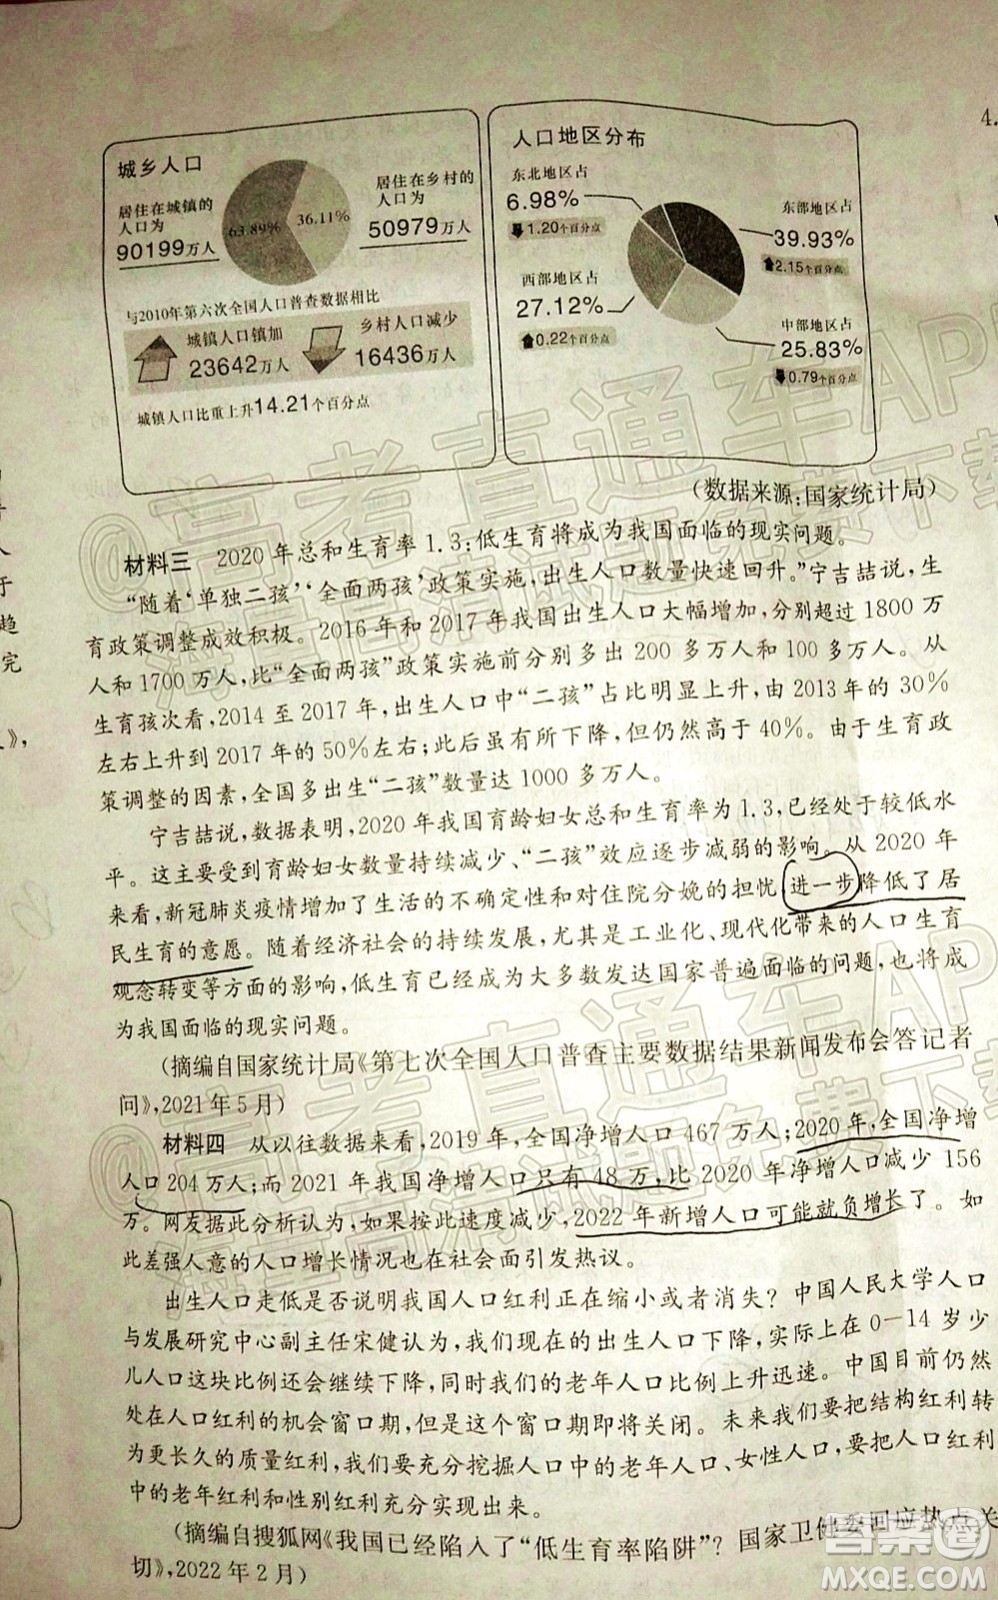 城乡人口
居住在城镇的
人口为
90199万人
63.89%
36.11%
居住在乡村的
人口为
50979万人
与2010年第六次全国人口普查数据相比
城镇人口镇加
23642万人
乡村人口减少
16436万人
城镇人口比重上升14.21个百分点
人口地区分布
东北地区占
6.98%
1.20个百分点
西部地区占
27.12%
0.22个百分点
东部地区占
39.93%
2.15个百分点
中部地区占
25.83%
0.79个百分点
4.
(数据来源:国家统计局)
材料三 2020年总和生育率1.3:低生育将成为我国面临的现实问题。
“随着‘单独二孩’‘全面两孩’政策实施,出生人口数量快速回升。”宁吉喆说,生
育政策调整成效积极。2016年和2017年我国出生人口大幅增加,分别超过1800万
人和1700万人,比“全面两孩”政策实施前分别多出200多万人和100多万人。从
生育孩次看,2014至2017年,出生人口中“二孩”占比明显上升,由2013年的30%
左右上升到2017年的50%左右;此后虽有所下降,但仍然高于40%。由于生育政
策调整的因素,全国多出生“二孩”数量达1000多万人。
宁吉喆说,数据表明,2020年我国育龄妇女总和生育率为1.3,已经处于较低水
平。这主要受到育龄妇女数量持续减少、“二孩”效应逐步减弱的影响。从2020年
来看,新冠肺炎疫情增加了生活的不确定性和对住院分娩的担忧,进一步降低了居
民生育的意愿。随着经济社会的持续发展,尤其是工业化、现代化带来的人口生育
观念转变等方面的影响,低生育已经成为大多数发达国家普遍面临的问题,也将成
为我国面临的现实问题。
(摘编自国家统计局《第七次全国人口普查主要数据结果新闻发布会答记者
问》,2021年5月)
材料四 从以往数据来看,2019年,全国净增人口467万人;2020年,全国净增
人口204万人;而2021年我国净增人口只有48万,比2020年净增人口减少156
万。网友据此分析认为,如果按此速度减少,2022年新增人口可能就负增长了。如
此差强人意的人口增长情况也在社会面引发热议。
出生人口走低是否说明我国人口红利正在缩小或者消失?中国人民大学人口
与发展研究中心副主任宋健认为,我们现在的出生人口下降,实际上在0—14岁少
儿人口这块比例还会继续下降,同时我们的老年人口比例上升迅速。中国目前仍然
处在人口红利的机会窗口期,但是这个窗口期即将关闭。未来我们要把结构红利转
为更长久的质量红利,我们要充分挖掘人口中的老年人口、女性人口,要把人口红利
中的老年红利和性别红利充分实现出来。
(摘编自搜狐网《我国已经陷入了“低生育率陷阱”?国家卫健委回应热点关
切》,2022年2月)
人
于
趋
完
》,
@高考直通车APP
海量高清试题免费下载
@高考直通车APP
海量高清试题免费下载
答案圈
MXQE.COM